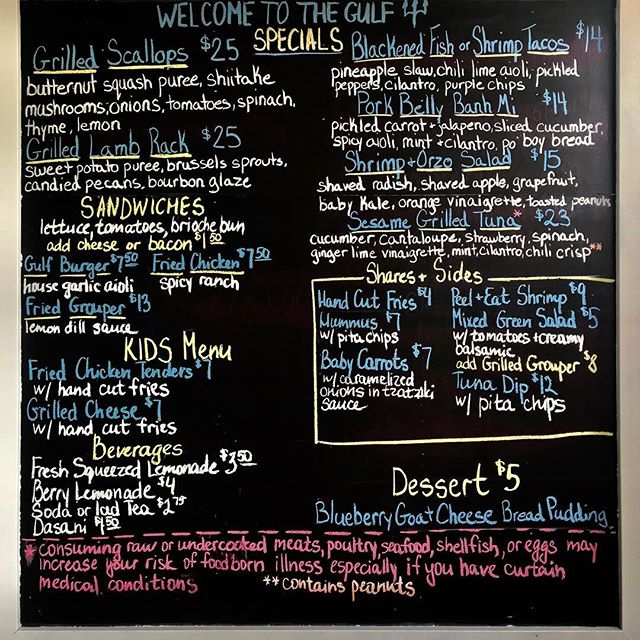 WELCOME TO THE GULF
SPECIALS
Grilled Scallops $25
butternut squash puree, shiitake
mushrooms, onions, tomatoes, spinach,
thyme, lemon
Grilled Lamb Rack $25
sweet potato puree, brussels sprouts,
candied pecans, bourbon glaze
SANDWICHES
lettuce, tomatoes, brioche bun
add cheese or bacon $1.50
Gulf Burger $7.50 Fried Chicken $7.50
house garlic aioli spicy ranch
Fried Grouper $13
lemon dill sauce
KIDS Menu
Fried Chicken Tenders $7
w/ hand cut fries
Grilled Cheese $7
w/ hand cut fries
Beverages
Fresh Squeezed Lemonade $3.50
Berry Lemonade $4
Soda or Iced Tea $2.75
Dasani $1.50
Blackened Fish or Shrimp Tacos $14
pineapple slaw, chili lime aioli, pickled
peppers, cilantro, purple chips
Pork Belly Banh Mi $14
pickled carrot + jalapeno, sliced cucumber,
spicy aioli, mint + cilantro, po' boy bread
Shrimp + Orzo Salad $15
shaved radish, shaved apple, grapefruit,
baby kale, orange vinaigrette, toasted peanuts
Sesame Grilled Tuna* $23
cucumber, cantaloupe, strawberry, spinach,
ginger lime vinaigrette, mint, cilantro, chili crisp**
Shares + Sides
Hand Cut Fries $4
Hummus $7
w/ pita chips
Baby Carrots $7
w/ caramelized
onions in tzatziki
sauce
Peel + Eat Shrimp $9
Mixed Green Salad $5
w/ tomatoes + creamy
balsamic
add Grilled Grouper $8
Tuna Dip $12
w/ pita chips
Dessert $5
Blueberry Goat Cheese Bread Pudding
* consuming raw or undercooked meats, poultry, seafood, shellfish, or eggs may
increase your risk of foodborn illness especially if you have curtain
medical conditions **contains peanuts